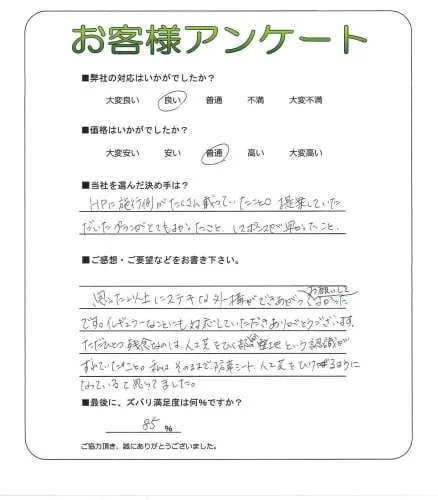 お客様アンケート
■弊社の対応はいかがでしたか?
大変良い 良い 普通 不満 大変不満
■価格はいかがでしたか?
大変安い 安い 普通 高い 大変高い
■当社を選んだ決め手は?
HPに施行例がたくさん載っていたこと。提案していた
だいたプランがとてもよかったこと、レスポンスが早かったこと。
■ご感想・ご要望などをお書き下さい。
お願いして
思った以上にステキな外構ができあがってよかった
です。イレギュラーなことにも対応していただきありがとうございます。
ただひとつ残念なのは、人工芝をひく部の整地という認識が
ずれていたこと。私は、そのままで防草シート、人工芝をひけるように
なっていると思ってました。
■最後に、ズバリ満足度は何%ですか?
85 %
ご協力頂き、誠にありがとうございました。